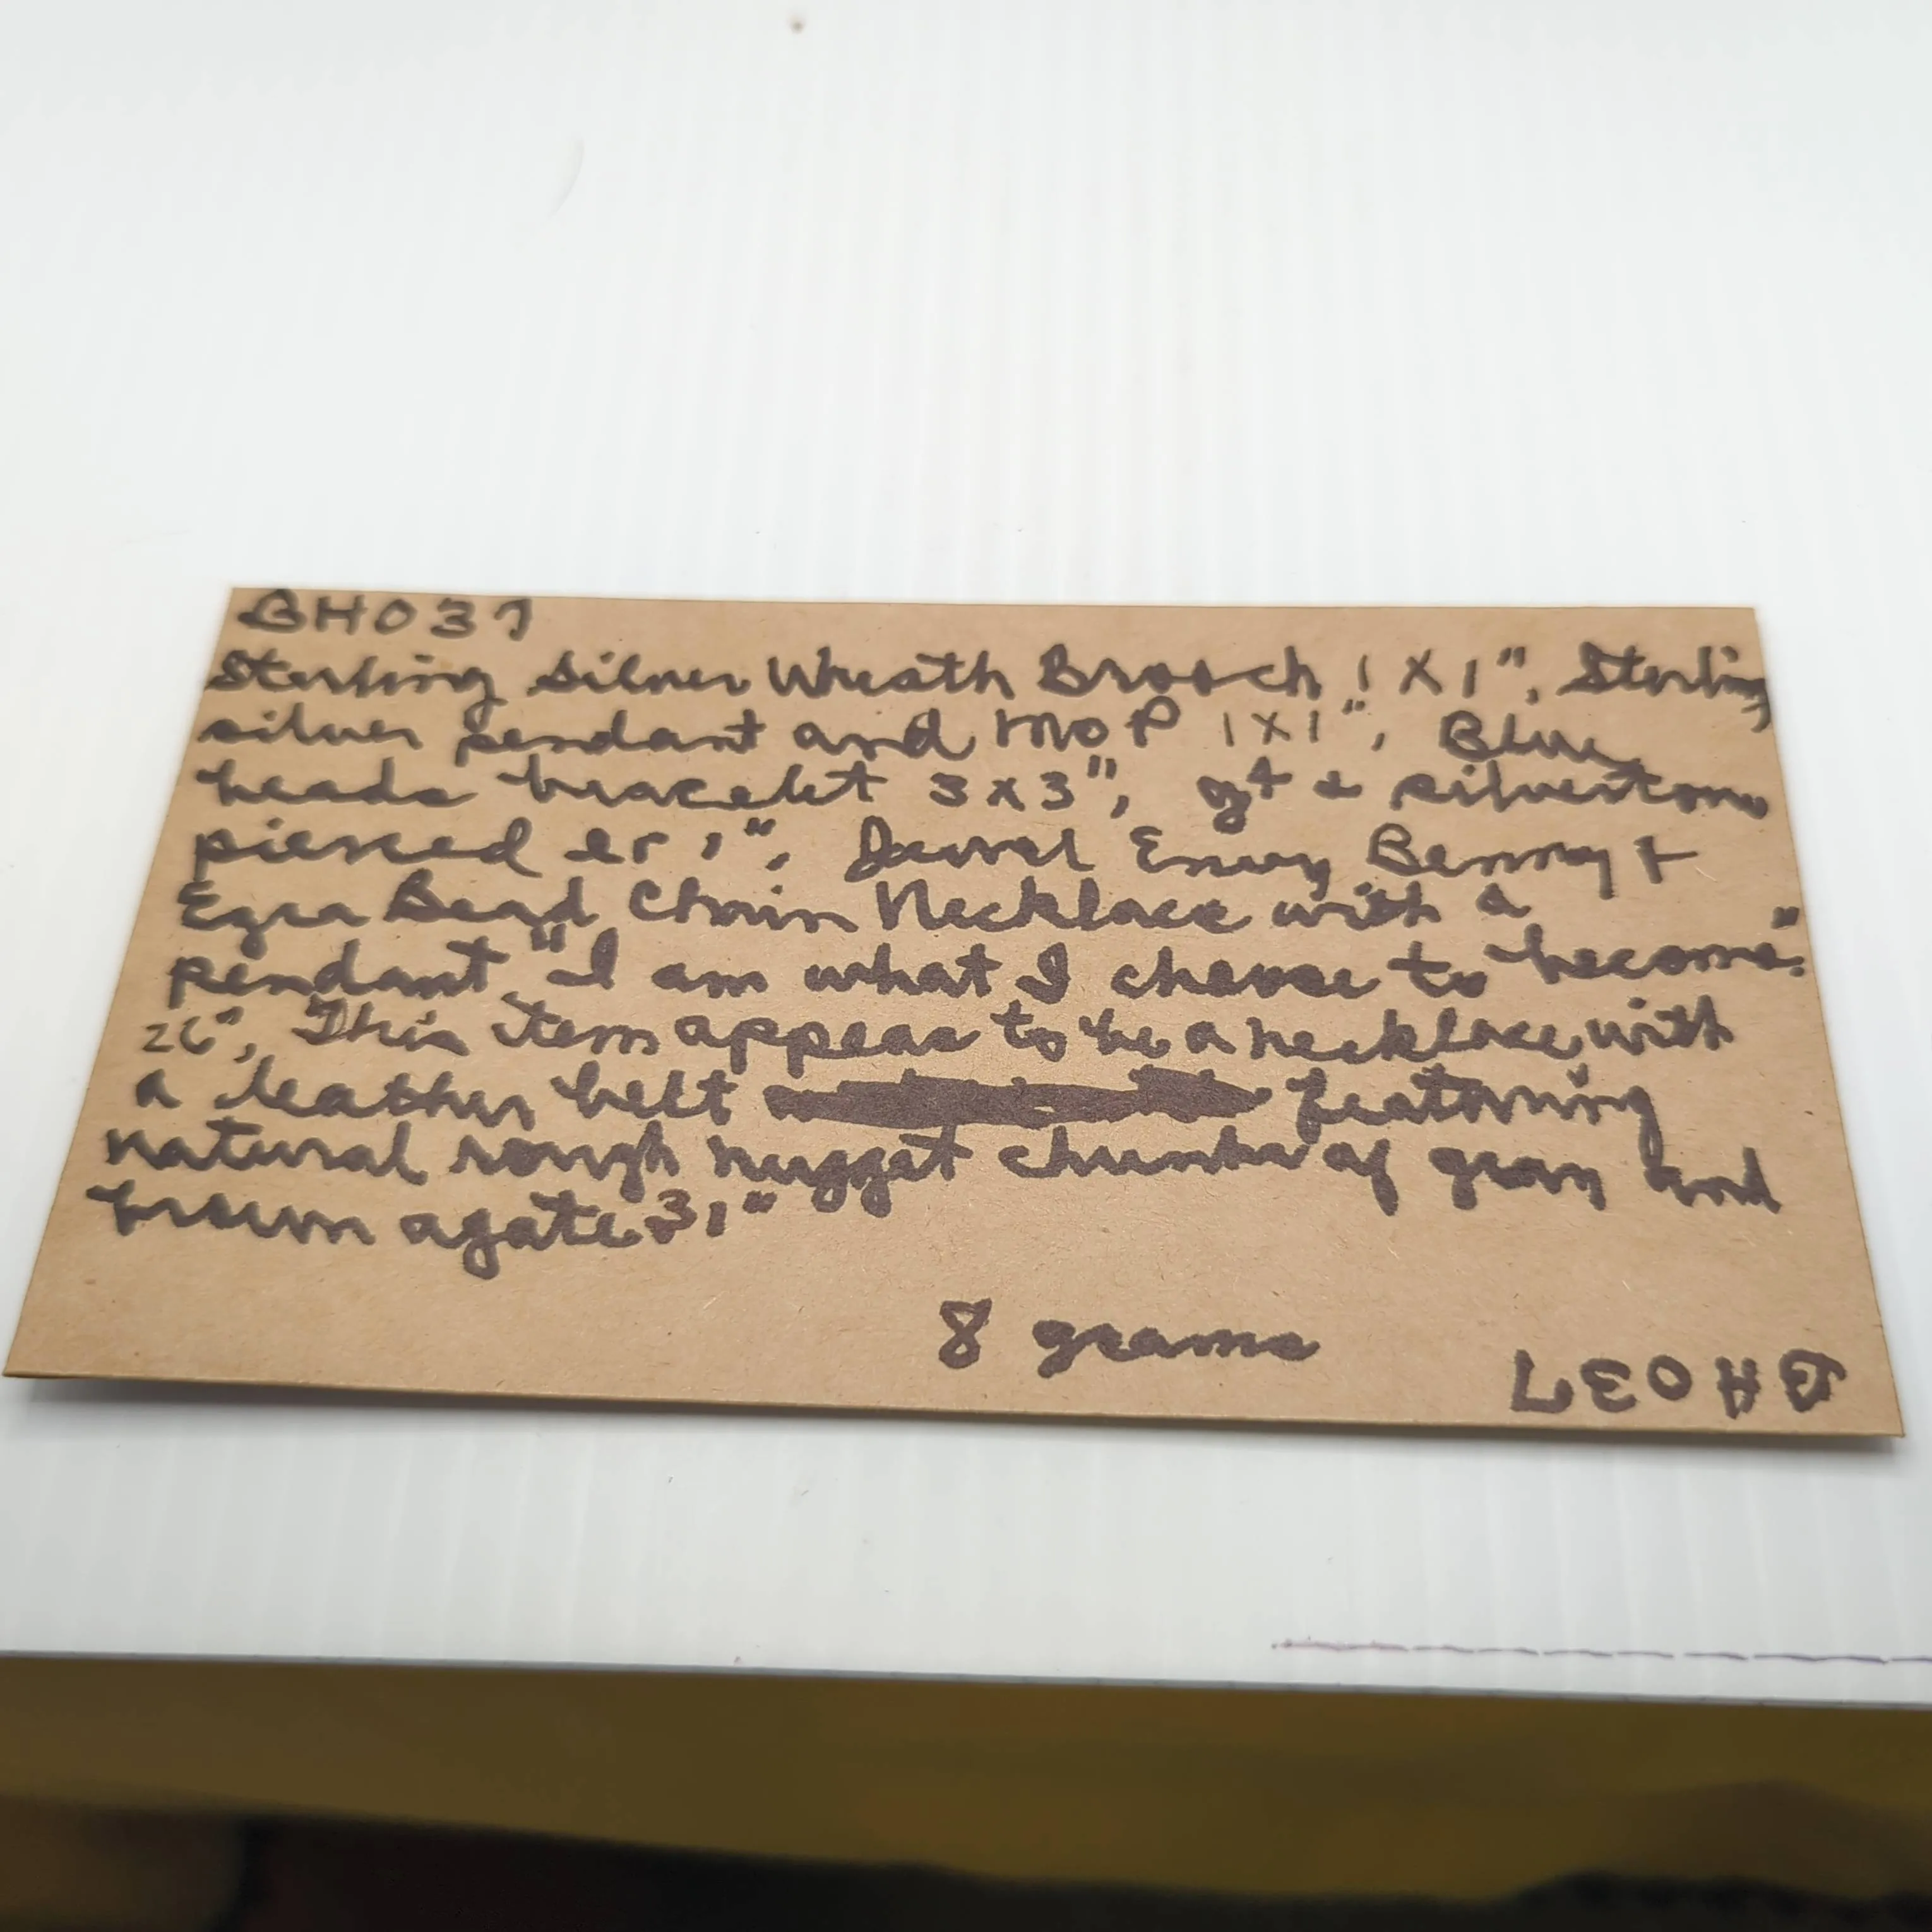 BH037
Sterling silver Wreath Brooch 1 X 1", Sterling
silver pendant and MOP 1X1", Blue
beads bracelet 3x3", gt & silvertone
pierced er 1", Envy Benny +
Ezra Bead Chain Necklace with a
pendant "I am what I choose to become."
26", This item appears to be a necklace with
a leather belt featuring
natural rough nugget chunks of gray and
brown agate 31"
8 grams
BH037